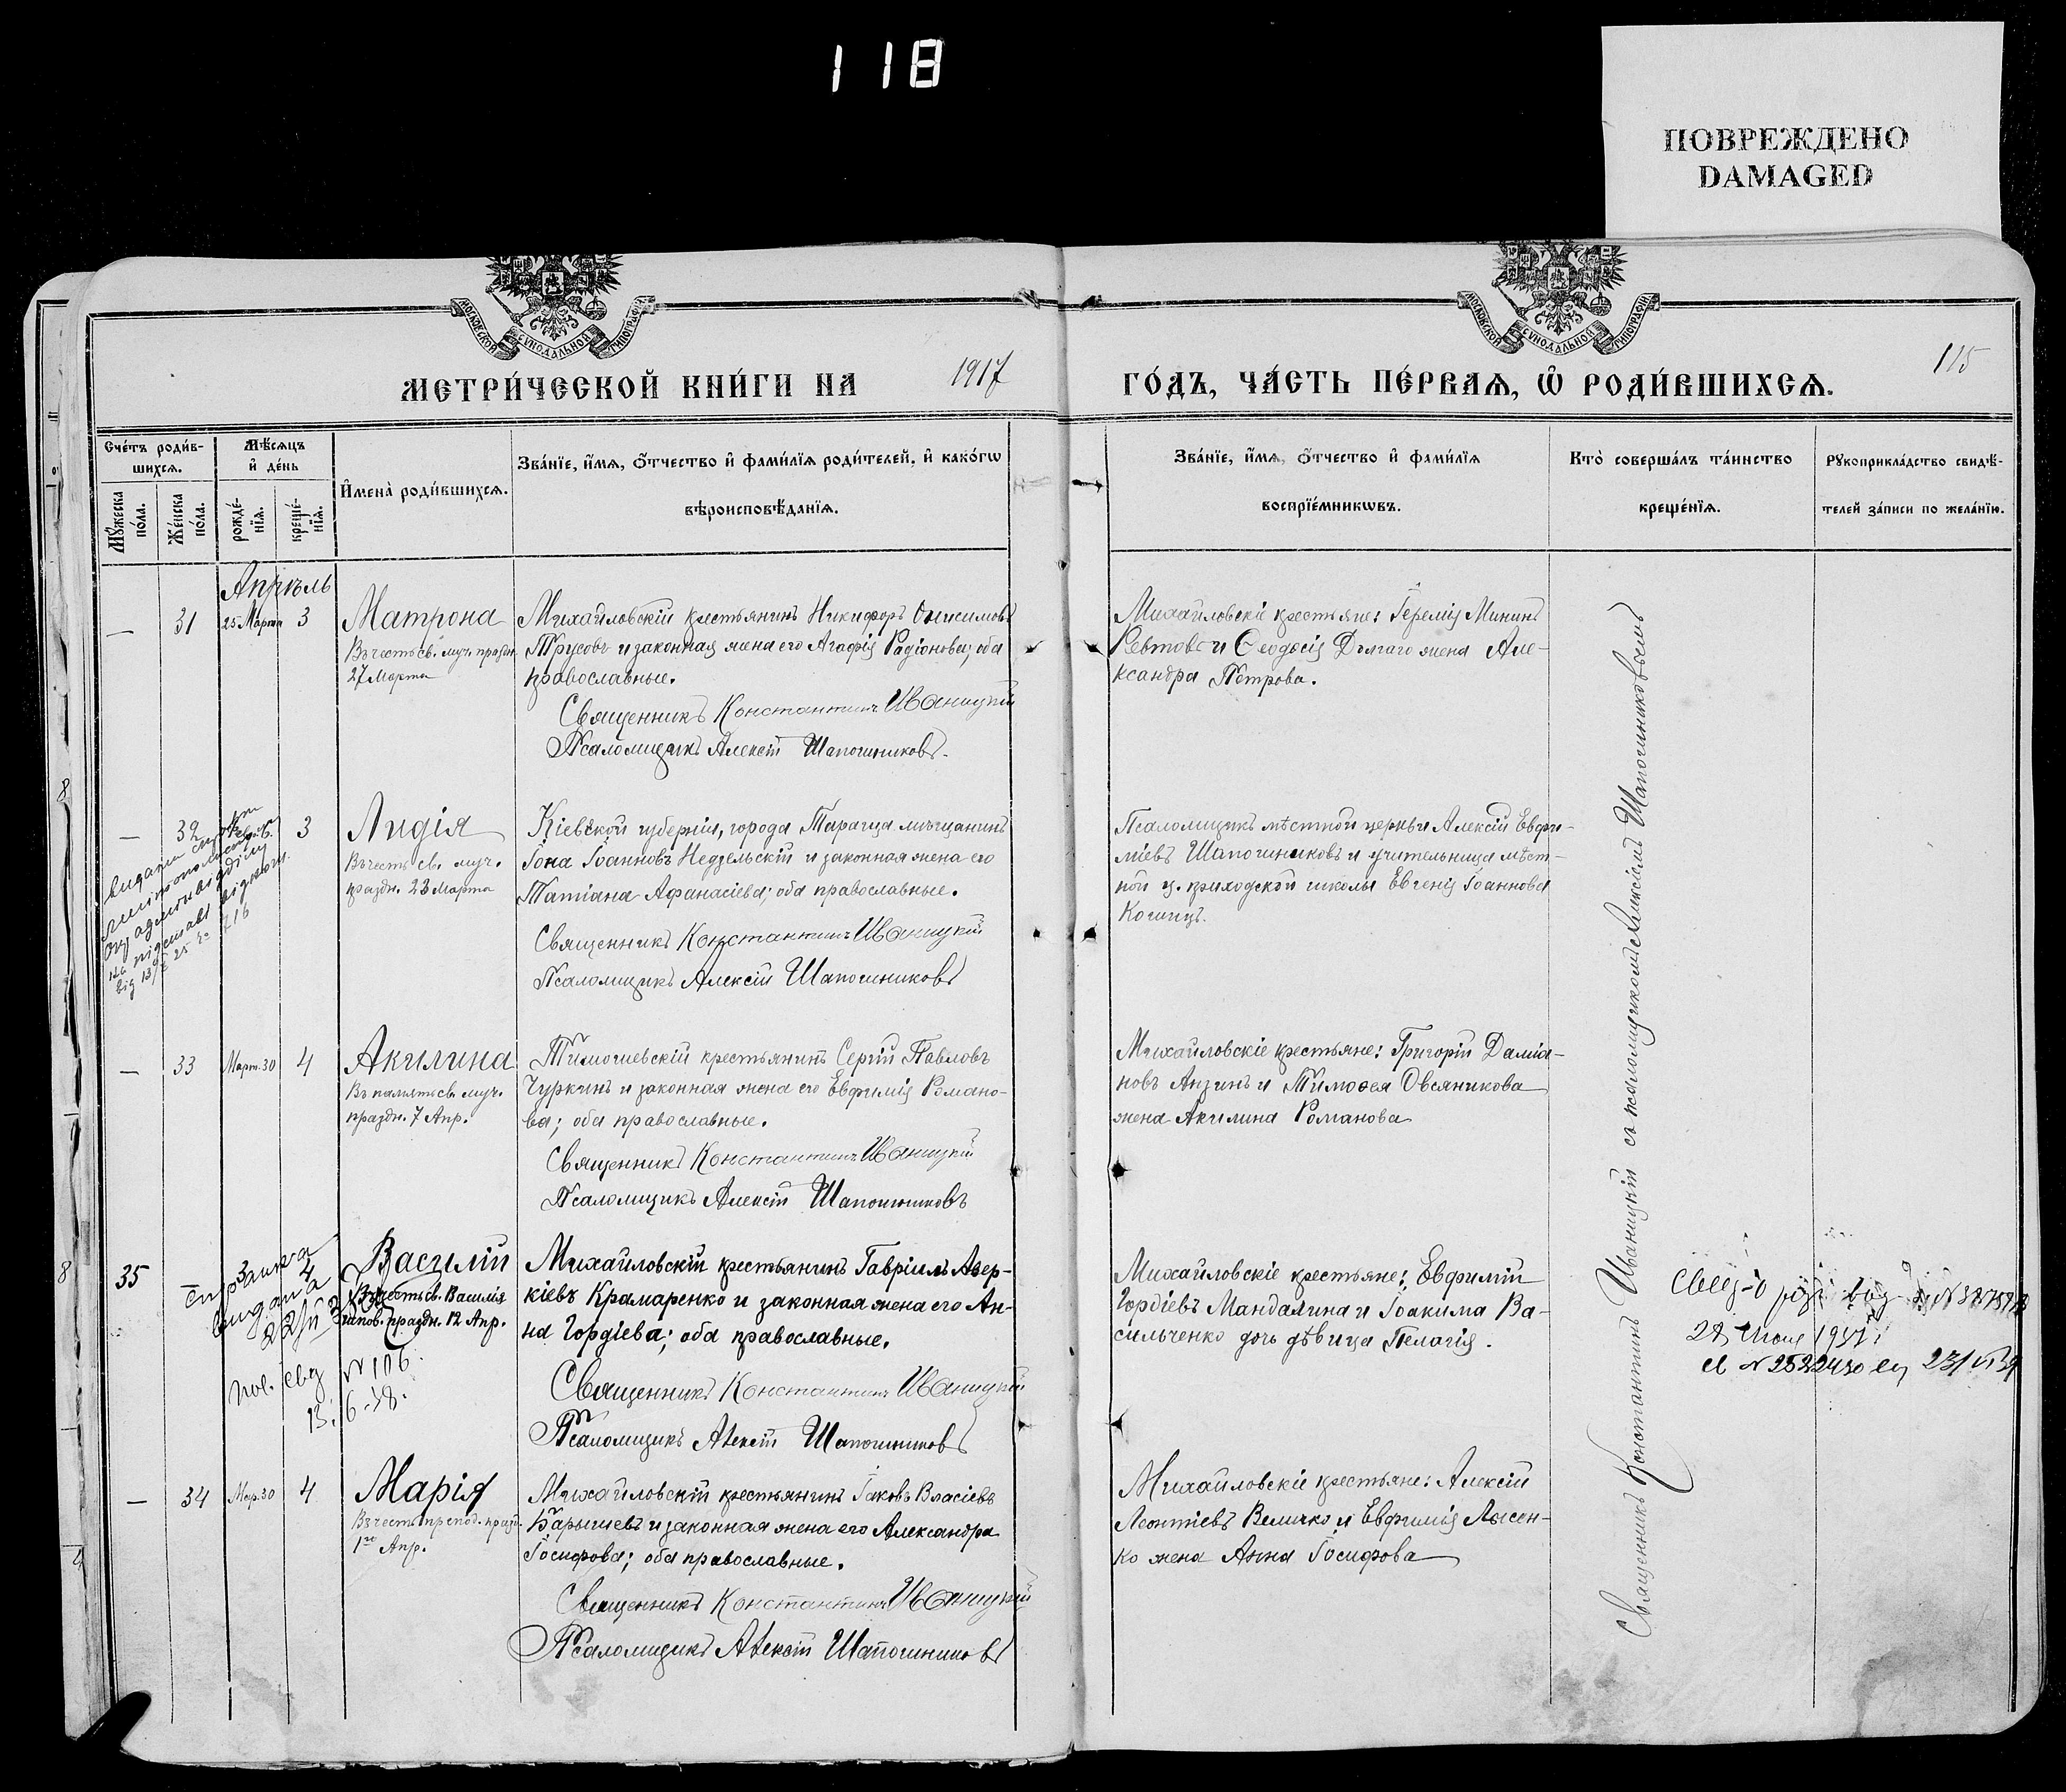 118
ПОВРЕЖДЕНО
DAMAGED
МОСКОВСКОЙ СУНОДАЛЬНОЙ ТИПОГРАФІИ
МОСКОВСКОЙ СУНОДАЛЬНОЙ ТИПОГРАФІИ
115
МЕТРИ́ЧЕСКОЙ КНИ́ГИ НА 1917 ГО́ДЪ, ЧА́СТЬ ПЕ́РВАѦ, Ѡ҆ РОДИ́ВШИХСѦ.
Сче́тъ роди́в-
шихсѧ.
Мꙋ́жеска
по́ла.
Же́нска
по́ла.
Мѣ́сѧцъ
и҆ де́нь
рожде́-
нїѧ.
креще́-
нїѧ.
И҆мена̀ роди́вшихсѧ.
Зва́нїе, и҆́мѧ, ѻ҆́тчество и҆ фами́лїѧ роди́телей, и҆ како́гѡ
вѣроисповѣ́данїѧ.
Зва́нїе, и҆́мѧ, ѻ҆́тчество и҆ фами́лїѧ
воспрїе́мникѡвъ.
Кто̀ соверша́лъ та́инство
креще́нїѧ.
Рꙋкоприкла́дство свидѣ́-
телей за́писи по жела́нїю.
Апрѣль
— 31 25 Марта 3 Матрона
Въ честь св. муч. праздн.
27 Марта
Михайловскій крестьянинъ Никифоръ Онисимовъ
Трусовъ и законная жена его Агафія Радіонова; оба
православные.
Священникъ Константинъ Иваницкій
Псаломщикъ Алексій Шапошниковъ.
Михайловскіе крестьяне: Іеремія Мининъ
Ревтовъ и Ѳеодосія Долгаго жена Але-
ксандра Петрова.
— 32 3 Лидія
Въ честь св. муч.
праздн. 23 Марта
Кіевской губерніи, города Тараща мѣщанинъ
Іона Іоанновъ Недзельскій и законная жена его
Татіана Афанасіева; оба православные.
Священникъ Константинъ Иваницкій
Псаломщикъ Алексій Шапошниковъ
Псаломщикъ мѣстной церкви Алексій Евфи-
міевъ Шапошниковъ и учительница мѣст-
ной ц. приходской школы Евгенія Іоаннова
Кошицъ.
— 33 Март. 30 4 Акилина
Въ память св. муч.
праздн. 7 Апр.
Тимошевскій крестьянинъ Сергій Павловъ
Чуркинъ и законная жена его Евфимія Романо-
ва; оба православные.
Священникъ Константинъ Иваницкій
Псаломщикъ Алексій Шапошниковъ
Михайловскіе крестьяне: Григорій Даміа-
новъ Анзинъ и Тимоѳея Овсяникова
жена Акилина Романова
35 — 3 4 Василій
Въ честь св. Василія
праздн. 12 Апр.
Михайловскій крестьянинъ Гавріилъ Авер-
кіевъ Крамаренко и законная жена его Ан-
на Гордіева; оба православные.
Священникъ Константинъ Иваницкій
Псаломщикъ Алексій Шапошниковъ
Михайловскіе крестьяне: Евфимій
Гордіевъ Мандалина и Іоакима Ва-
сильченко дочь дѣвица Пелагія.
видана
№ 106
13. 6-38.
— 34 Мар. 30 4 Марія
Въ честь препод. празд.
1го Апр.
Михайловскій крестьянинъ Іаковъ Власіевъ
Барышевъ и законная жена его Александра
Іосифова; оба православные.
Священникъ Константинъ Иваницкій
Псаломщикъ Алексій Шапошниковъ
Михайловскіе крестьяне: Алексій
Леонтіевъ Величко и Евфимія Лысен-
ко жена Анна Іосифова
Священникъ Константинъ Иваницкій съ псаломщикомъ Алексіемъ Шапошниковымъ